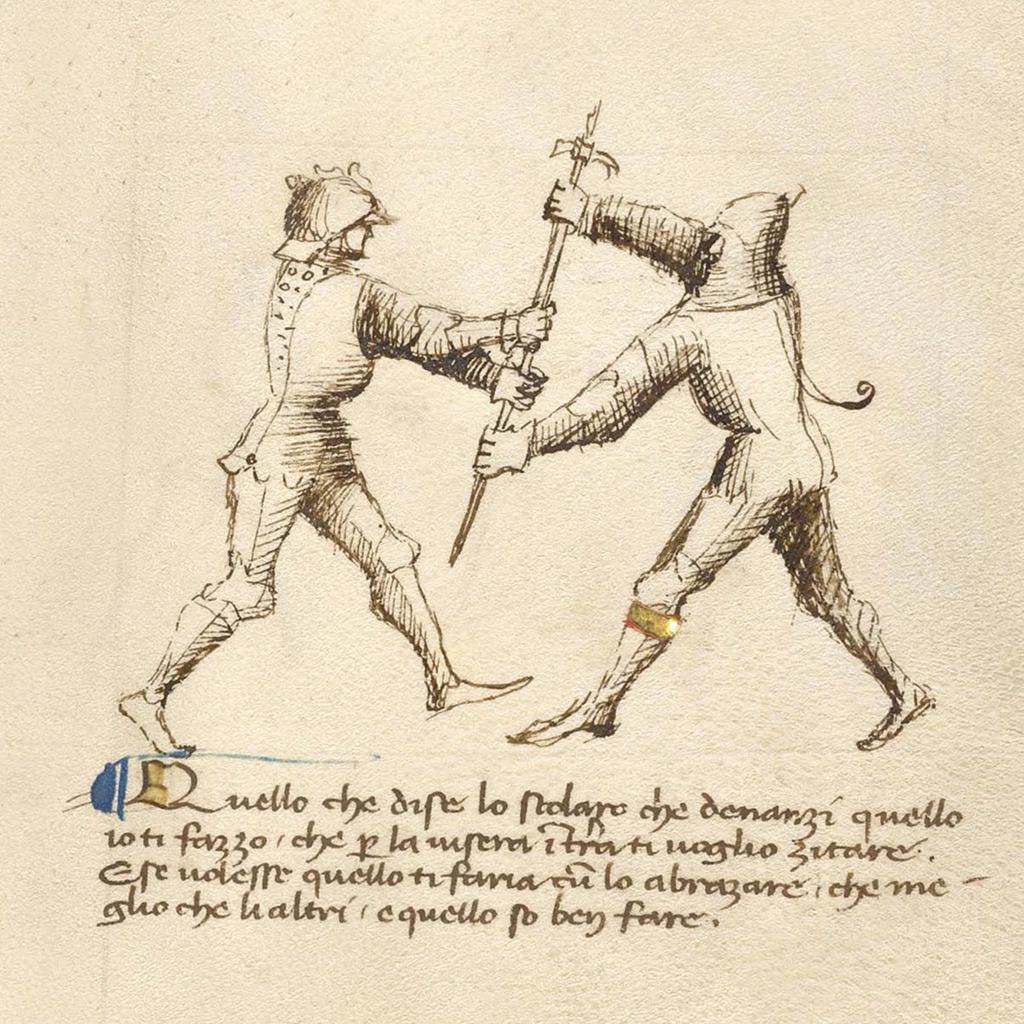 Quello che dise lo scolaro che denanzi quello
io ti fazzo, che p̱ la visera ī trã ti voglio zitare.
E se volesse quello ti faria cũ lo abrazare, che me-
glio che li altri, e quello so ben fare.